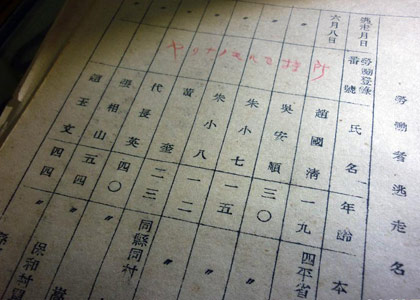 勞働者逃走名
逃走月日 勞働登錄番號 氏名 年齡 本
六月八日 趙國清 一九 四平省
吳安順 三〇 〃
朱小七 一五 〃
朱小八 一二 〃
黃奎 二三 同縣同村
代長英 四〇 〃
張相山 五四 〃
玉文 四四 保和村